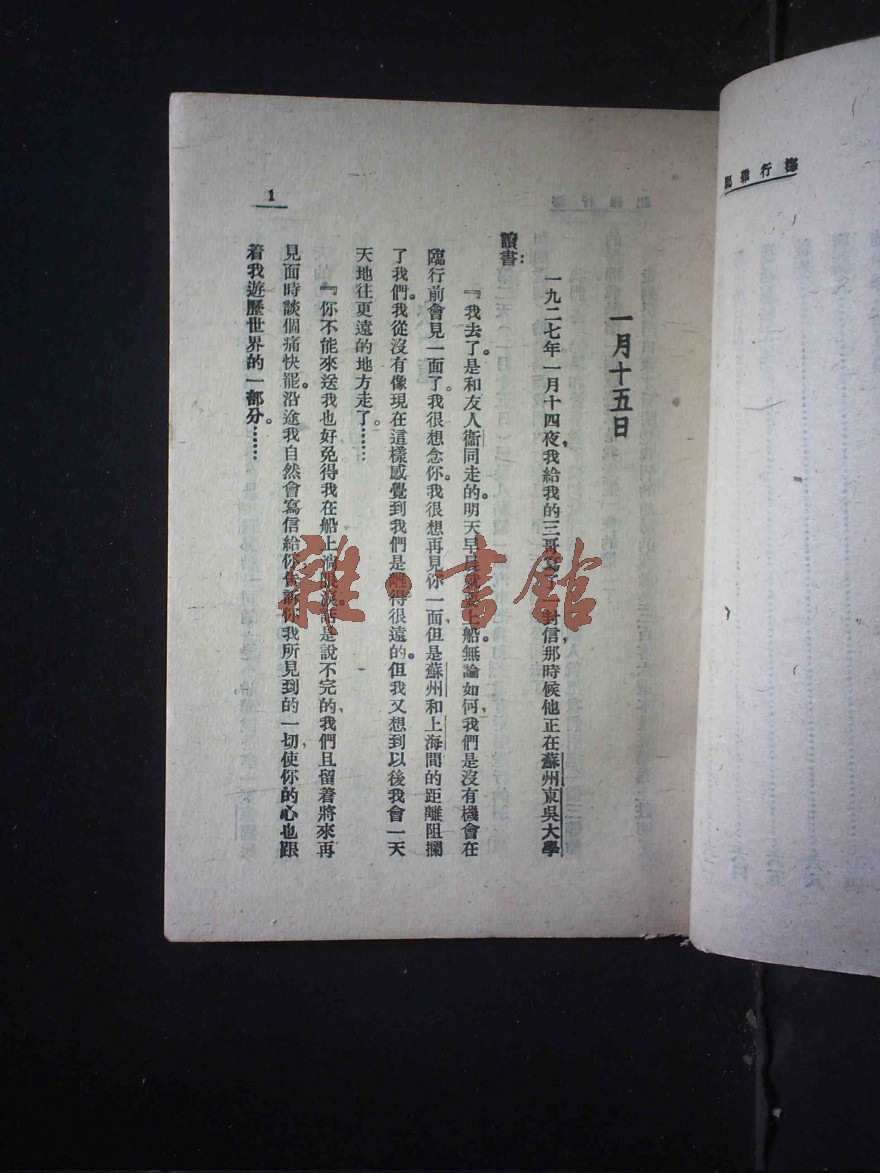 海行雜記
一月十五日
一九二七年一月十四夜，我給我的三哥寫了一封信，那時候他正在蘇州東吳大學
讀書：
『我去了。是和友人衞同走的。明天早晨就要上船。無論如何，我們是沒有機會在
臨行前會見一面了。我很想念你。我很想再見你一面。但是蘇州和上海間的距離阻攔
了我們。我從沒有像現在這樣感覺到我們是離得很遠的。但我又想到以後我會一天
天地往更遠的地方走了。……
『你不能來送我也好，免得我在船上淌眼淚。話是說不完的，我們且留着將來再
見面時談個痛快罷。沿途我自然會寫信給你告訴你我所見到的一切，使你的心也跟
着我遊歷世界的一部分。……
1
雜·書館